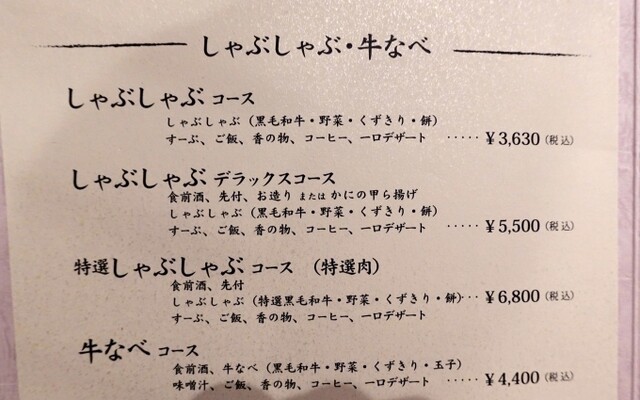 しゃぶしゃぶ・牛なべ
しゃぶしゃぶ コース
しゃぶしゃぶ（黒毛和牛・野菜・くずきり・餅）
すーぷ、ご飯、香の物、コーヒー、一口デザート ····· ¥3,630（税込）
しゃぶしゃぶ デラックスコース
食前酒、先付、お造り または かにの甲ら揚げ
しゃぶしゃぶ（黒毛和牛・野菜・くずきり・餅）
すーぷ、ご飯、香の物、コーヒー、一口デザート ····· ¥5,500（税込）
特選しゃぶしゃぶ コース （特選肉）
食前酒、先付
しゃぶしゃぶ（特選黒毛和牛・野菜・くずきり・餅）··· ¥6,800（税込）
すーぷ、ご飯、香の物、コーヒー、一口デザート
牛なべ コース
食前酒、牛なべ（黒毛和牛・野菜・くずきり・玉子）
味噌汁、ご飯、香の物、コーヒー、一口デザート ····· ¥4,400（税込）